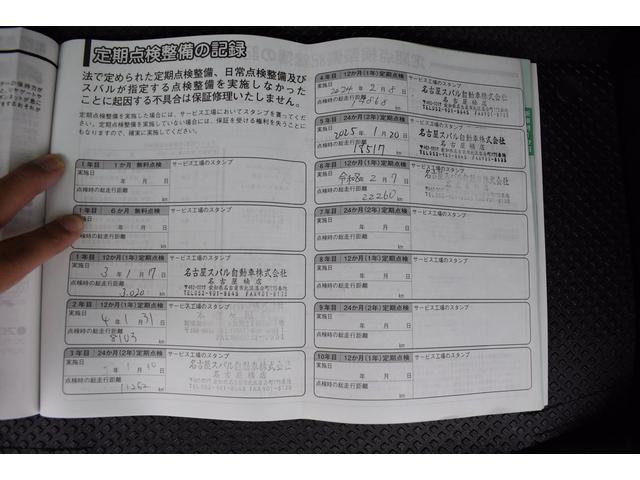 定期点検整備の記録
法で定められた定期点検整備、日常点検整備及び
スバルが指定する点検整備を実施しなかった
ことに起因する不具合は保証修理いたしません。
定期点検整備を実施した場合には、サービス工場においてスタンプを書ってくだ
さい。定期点検整備を実施していない場合には、保証を受ける権利を失うことに
もなりますので、確実に実施してください。
1年目 1か月 無料点検 サービス工場のスタンプ
実施日
年 月 日
点検時の総走行距離
km
1年目 6か月 無料点検 サービス工場のスタンプ
実施日
年 月 日
点検時の総走行距離
km
1年目 12か月(1年)定期点検 サービス工場のスタンプ
実施日
3年 1月 7日
点検時の総走行距離
3,020 km
名古屋スバル自動車株式会社
名古屋楠店
2年目 12か月(1年)定期点検 サービス工場のスタンプ
実施日
4年 1月 31日
点検時の総走行距離
8103 km
3年目 24か月(2年)定期点検 サービス工場のスタンプ
実施日
年 1月 10日
点検時の総走行距離
11262 km
名古屋スバル自動車株式会社
名古屋楠店
4年目 12か月(1年)定期点検 サービス工場のスタンプ
実施日
2024年 2月 5日
点検時の総走行距離
km
名古屋スバル自動車株式会社
名古屋楠店
5年目 24か月(2年)定期点検 サービス工場のスタンプ
実施日
2025年 1月 20日
点検時の総走行距離
18517 km
名古屋スバル自動車株式会社
名古屋楠店
6年目 12か月(1年)定期点検 サービス工場のスタンプ
実施日
令和8年 2月 7日
点検時の総走行距離
22260 km
名古屋スバル自動車株式会社
名古屋楠店
7年目 24か月(2年)定期点検 サービス工場のスタンプ
実施日
年 月 日
点検時の総走行距離
km
8年目 12か月(1年)定期点検 サービス工場のスタンプ
実施日
年 月 日
点検時の総走行距離
km
9年目 24か月(2年)定期点検 サービス工場のスタンプ
実施日
年 月 日
点検時の総走行距離
km
10年目 12か月(1年)定期点検 サービス工場のスタンプ
実施日
年 月 日
点検時の総走行距離
km